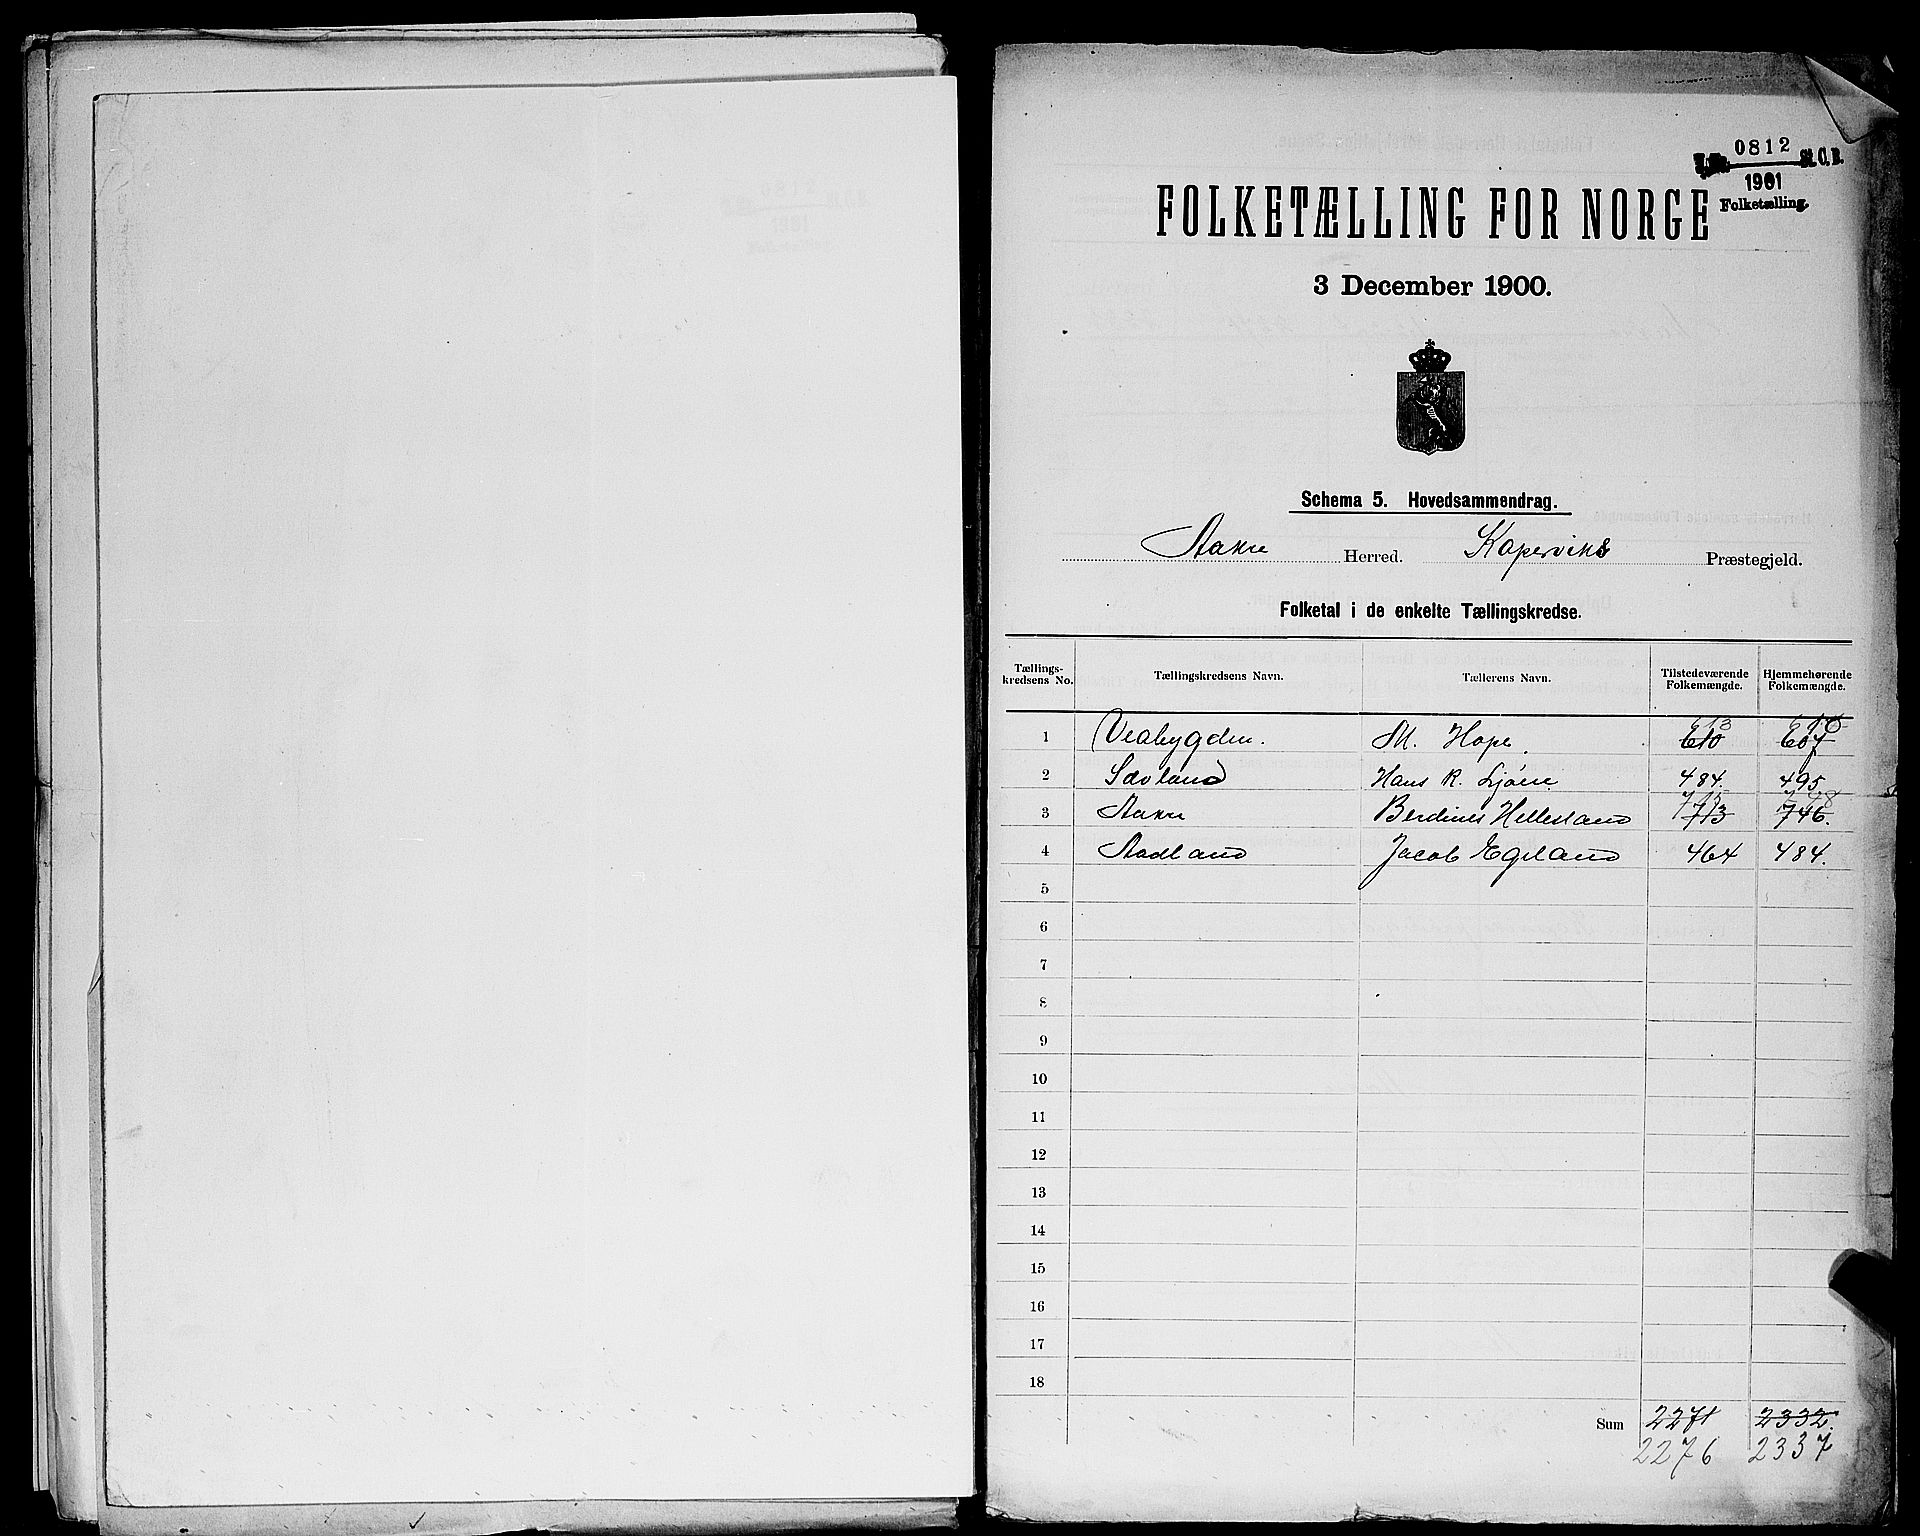 0812
J.No. St.C.B.
1901
Folketælling.
FOLKETÆLLING FOR NORGE
3 December 1900.
Schema 5. Hovedsammendrag.
Aakre Herred. Kopervik Præstegjeld.
Folketal i de enkelte Tællingskredse.
Tællings-kredsens No. Tællingskredsens Navn. Tællerens Navn. Tilstedeværende Folkemængde. Hjemmehørende Folkemængde.
613 610
1 Veabygden. M. Hope. 610 607
2 Sævland Hans R. Liknes. 484. 495
715 748
3 Aakre Berdines Hellesland 713 746.
4 Aadland Jacob Egeland 464 484.
5
6
7
8
9
10
11
12
13
14
15
16
17
18
Sum 2271 2332.
2276 2337